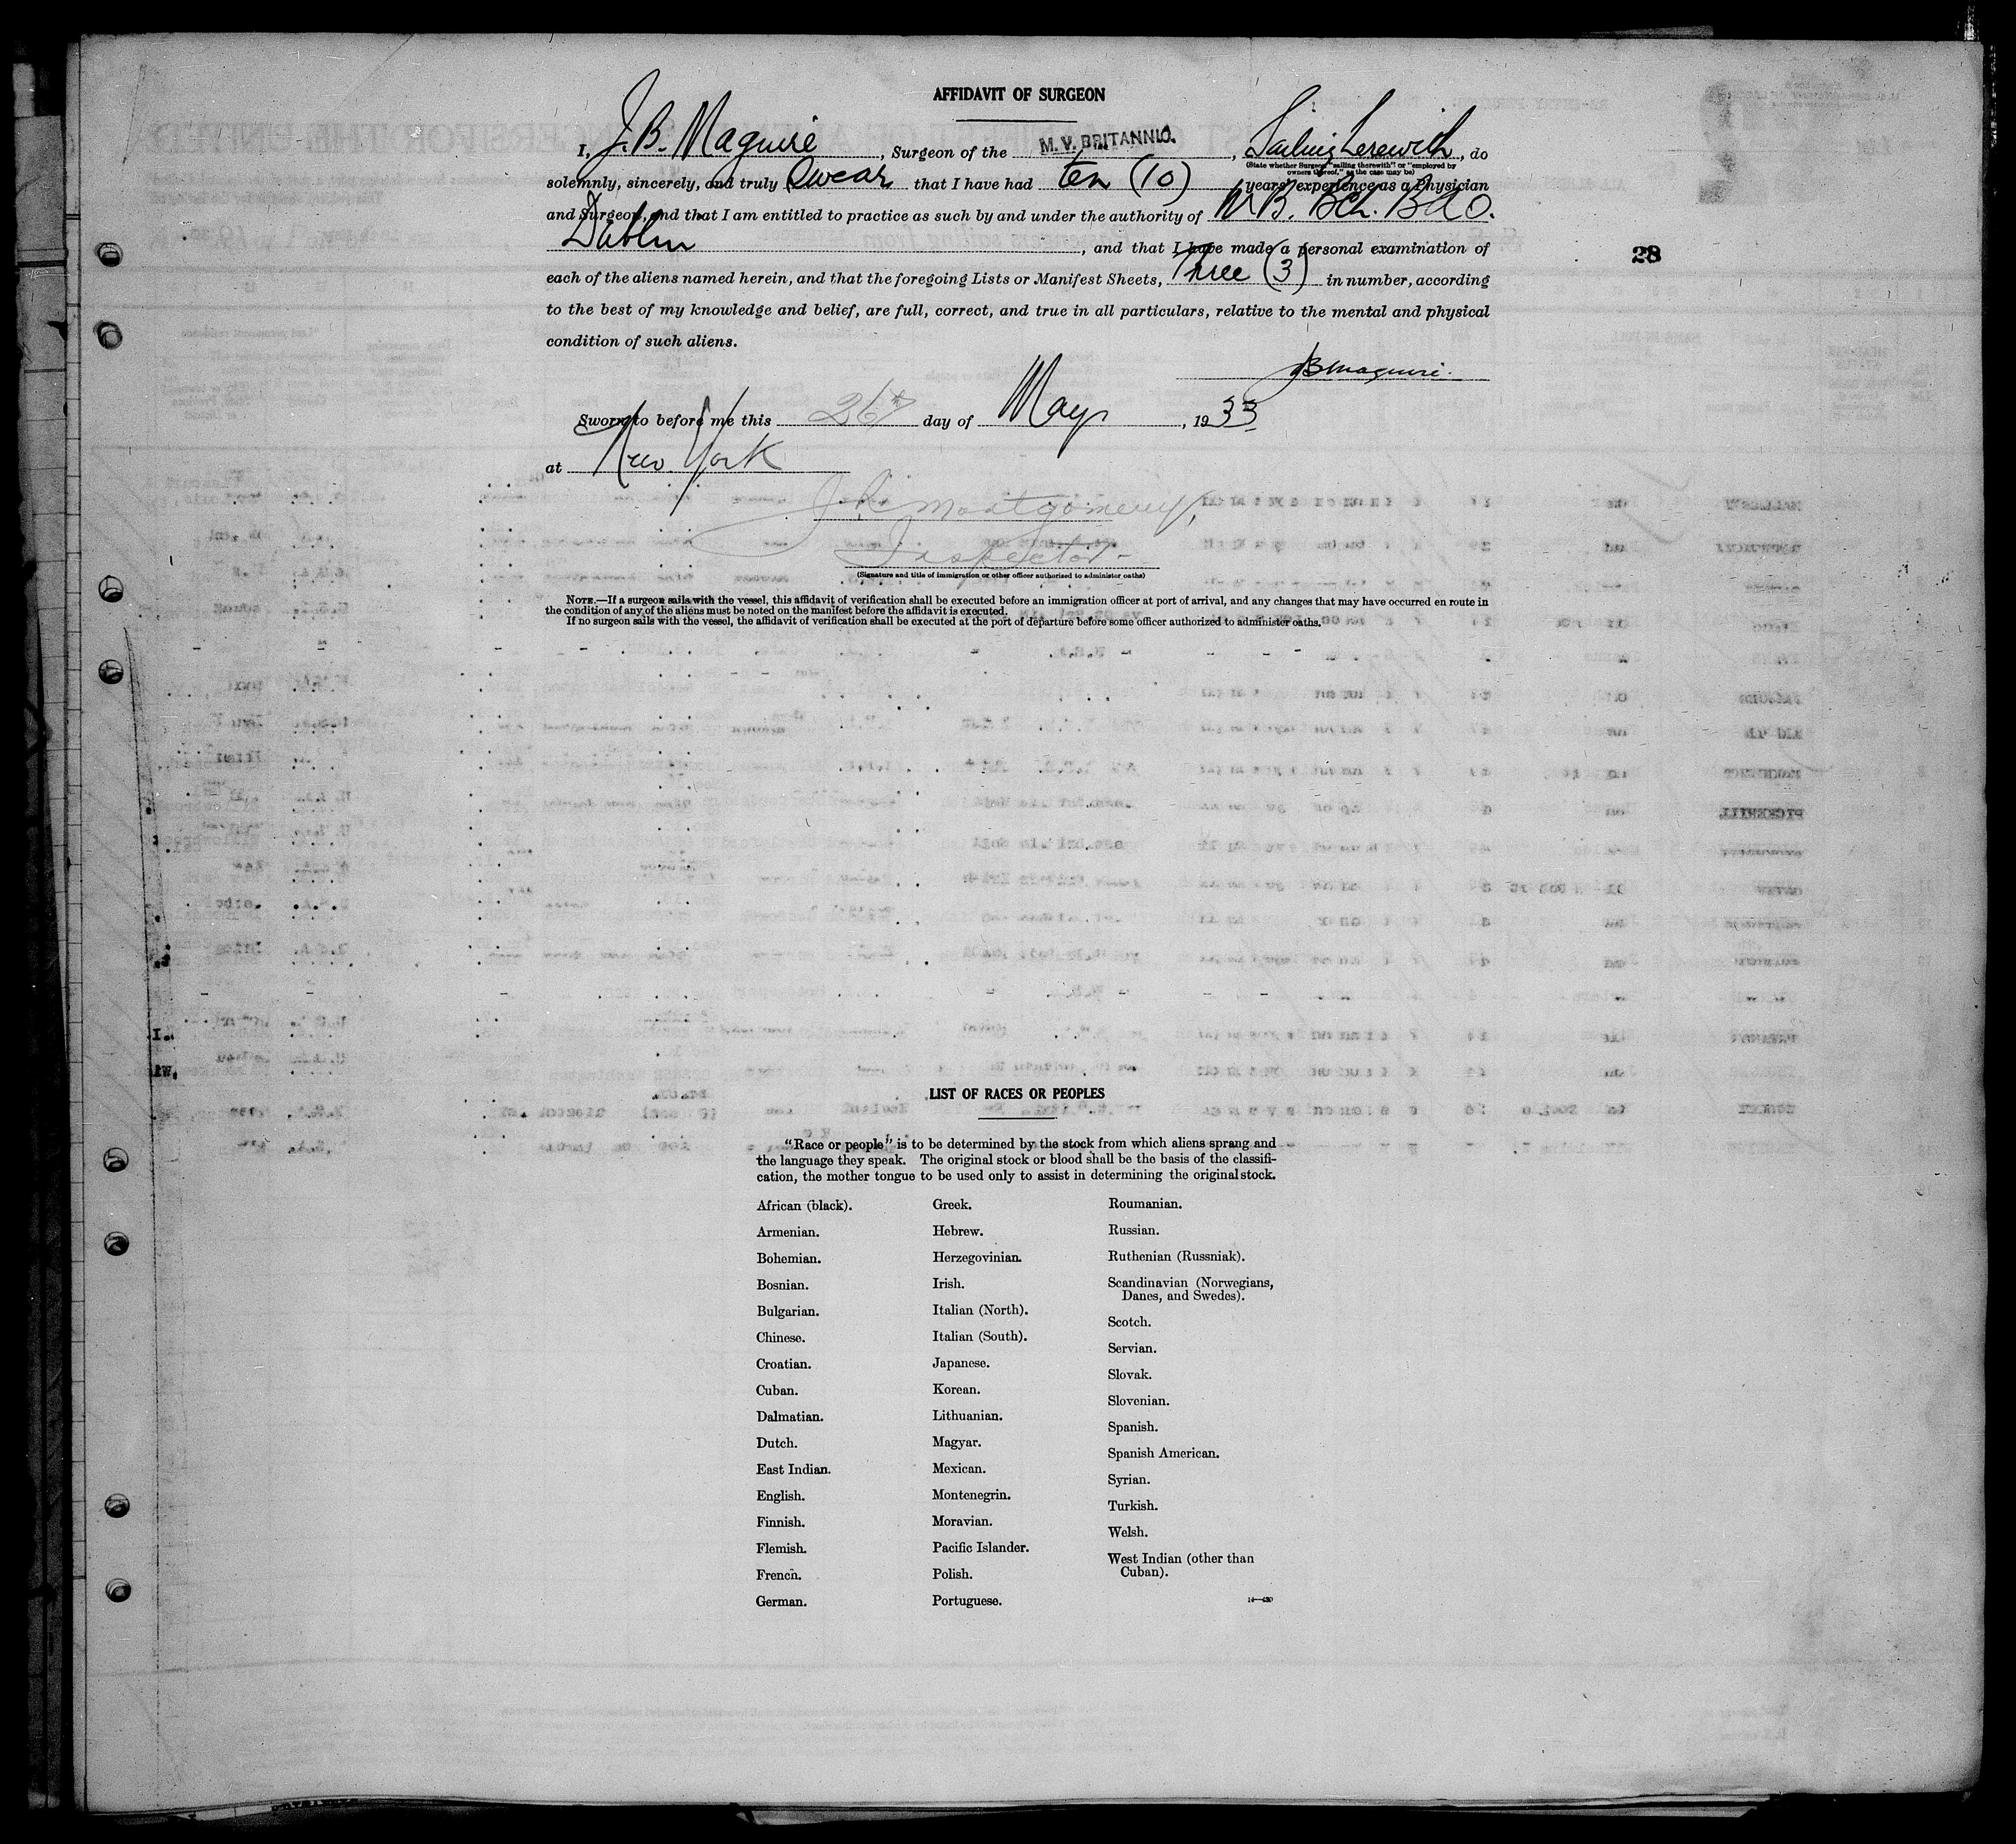 AFFIDAVIT OF SURGEON
I, J. B. Maguire, Surgeon of the M. V. BRITANNIC., Sailing therewith, do
(State whether Surgeon "sailing therewith" or "employed by owners thereof," as the case may be)
solemnly, sincerely, and truly Swear that I have had ten (10) years' experience as a Physician
and Surgeon, and that I am entitled to practice as such by and under the authority of M.B. BCh. BAO.
Dublin, and that I have made a personal examination of
each of the aliens named herein, and that the foregoing Lists or Manifest Sheets, Three (3) in number, according
to the best of my knowledge and belief, are full, correct, and true in all particulars, relative to the mental and physical
condition of such aliens.
JBMaguire.
28
Sworn to before me this 26th day of May, 1933
at New York
Montgomery,
Inspector
(Signature and title of immigration or other officer authorized to administer oaths)
NOTE.—If a surgeon sails with the vessel, this affidavit of verification shall be executed before an immigration officer at port of arrival, and any changes that may have occurred en route in
the condition of any of the aliens must be noted on the manifest before the affidavit is executed.
If no surgeon sails with the vessel, the affidavit of verification shall be executed at the port of departure before some officer authorized to administer oaths.
LIST OF RACES OR PEOPLES
"Race or people" is to be determined by the stock from which aliens sprang and
the language they speak. The original stock or blood shall be the basis of the classifi-
cation, the mother tongue to be used only to assist in determining the original stock.
African (black).
Armenian.
Bohemian.
Bosnian.
Bulgarian.
Chinese.
Croatian.
Cuban.
Dalmatian.
Dutch.
East Indian.
English.
Finnish.
Flemish.
French.
German.
Greek.
Hebrew.
Herzegovinian.
Irish.
Italian (North).
Italian (South).
Japanese.
Korean.
Lithuanian.
Magyar.
Mexican.
Montenegrin.
Moravian.
Pacific Islander.
Polish.
Portuguese.
Roumanian.
Russian.
Ruthenian (Russniak).
Scandinavian (Norwegians,
Danes, and Swedes).
Scotch.
Servian.
Slovak.
Slovenian.
Spanish.
Spanish American.
Syrian.
Turkish.
Welsh.
West Indian (other than
Cuban).